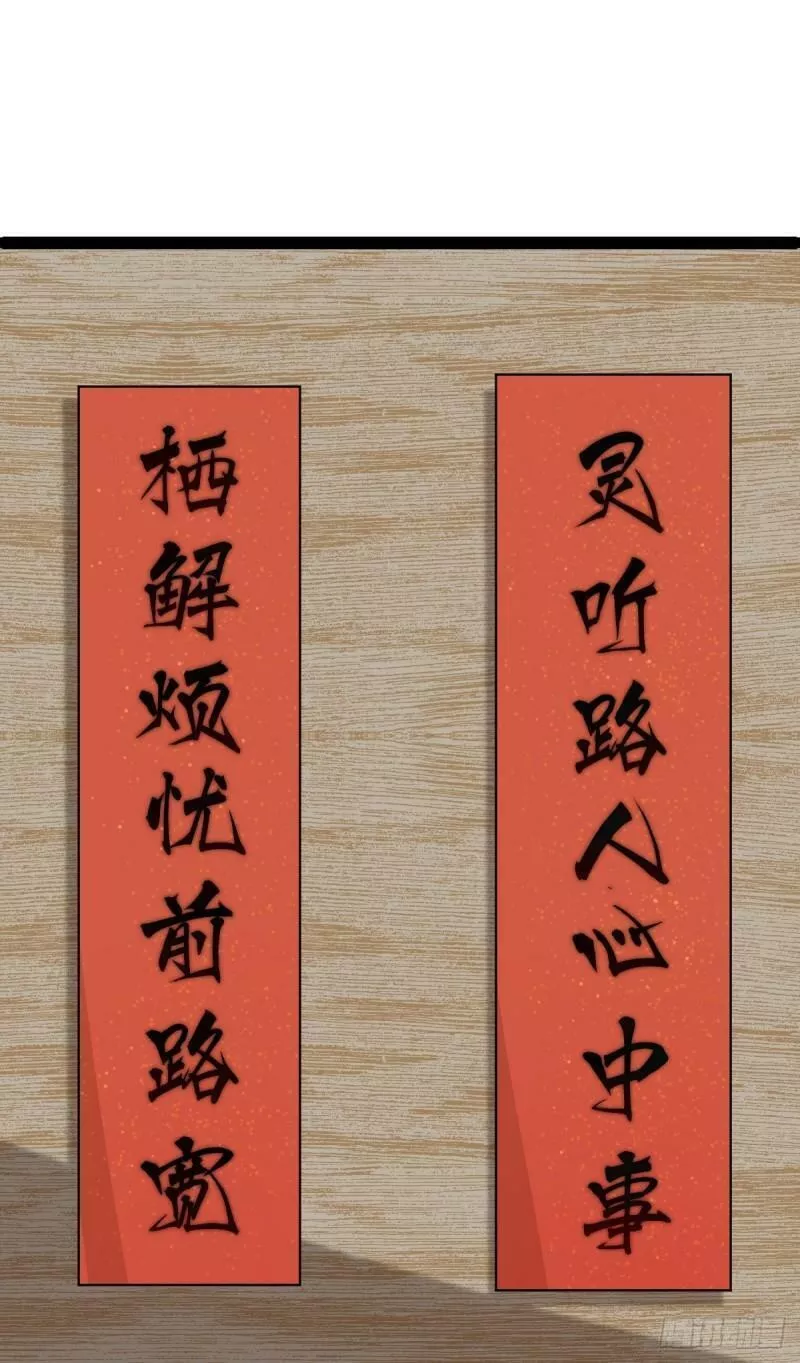 灵听路人心中事
栖解烦忧前路宽